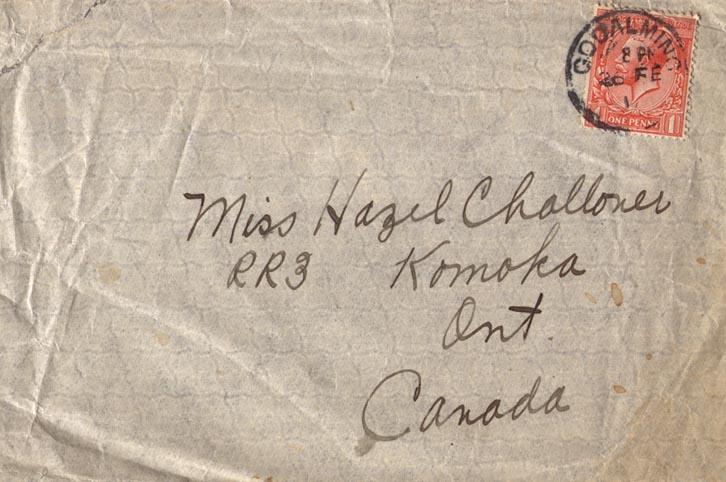 GODALMING
8 PM
26 FE
1
ONE PENNY 1
Miss Hazel Challoner
RR3 Komoka
Ont.
Canada